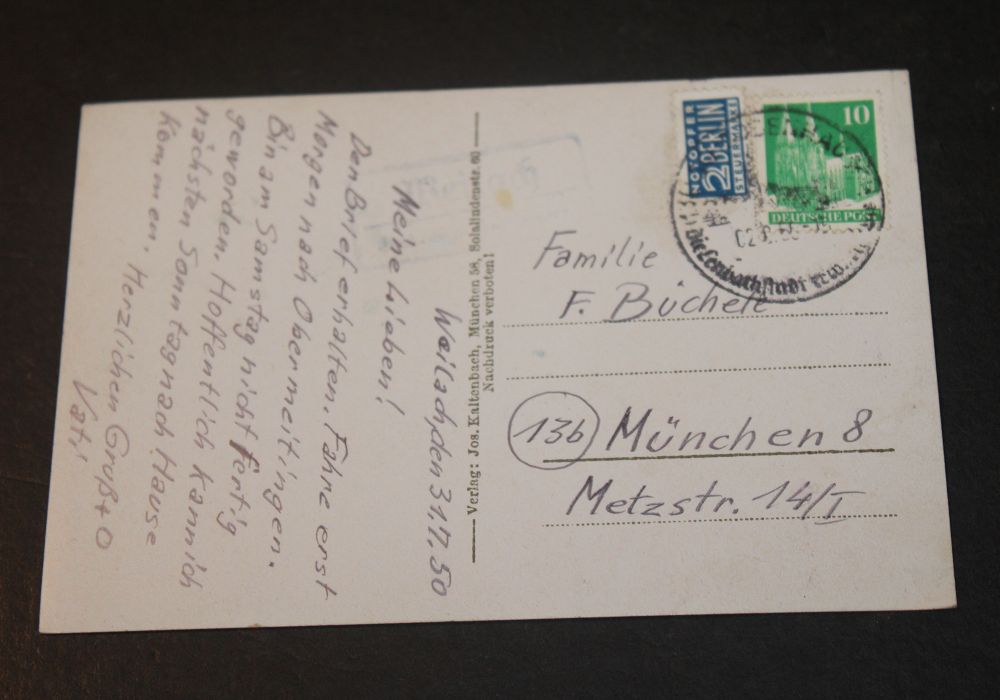 Weilach, den 31.7.50
Meine Lieben!
Den Brief erhalten. Fahre erst
Morgen nach Obermeitingen.
Bin am Samstag nicht fertig
geworden. Hoffentlich kann ich
nächsten Sonntag nach Hause
kommen. Herzlichen Gruß + O
Vati
Verlag: Jos. Kaltenbach, München 58, Solalindenstr. 60
Nachdruck verboten!
NOTOPFER
2 BERLIN
STEUERMARKE
10
DEUTSCHE POST
Familie
F. Büchele
13b München 8
Metzstr. 14/I